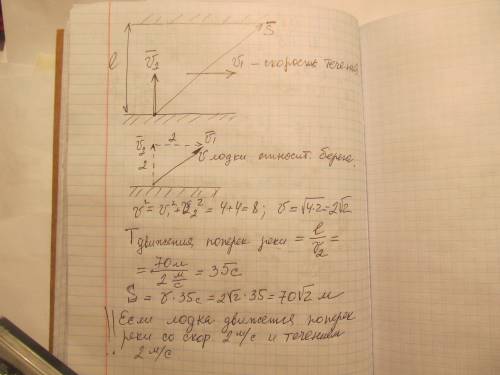 S̄
l
v̄₂
v̄₁ – скорость течения
v̄₂ 2 v̄₁
2 v лодки относит. берега.
v² = v₁² + v₂² = 4+4 = 8; v = √4·2 = 2√2
T движения поперек реки = l/v₂ =
= 70м / 2 м/с = 35с
S = v · 35с = 2√2 · 35 = 70√2 м
Если лодка движется поперек
реки со скор. 2 м/с и течением
2 м/с